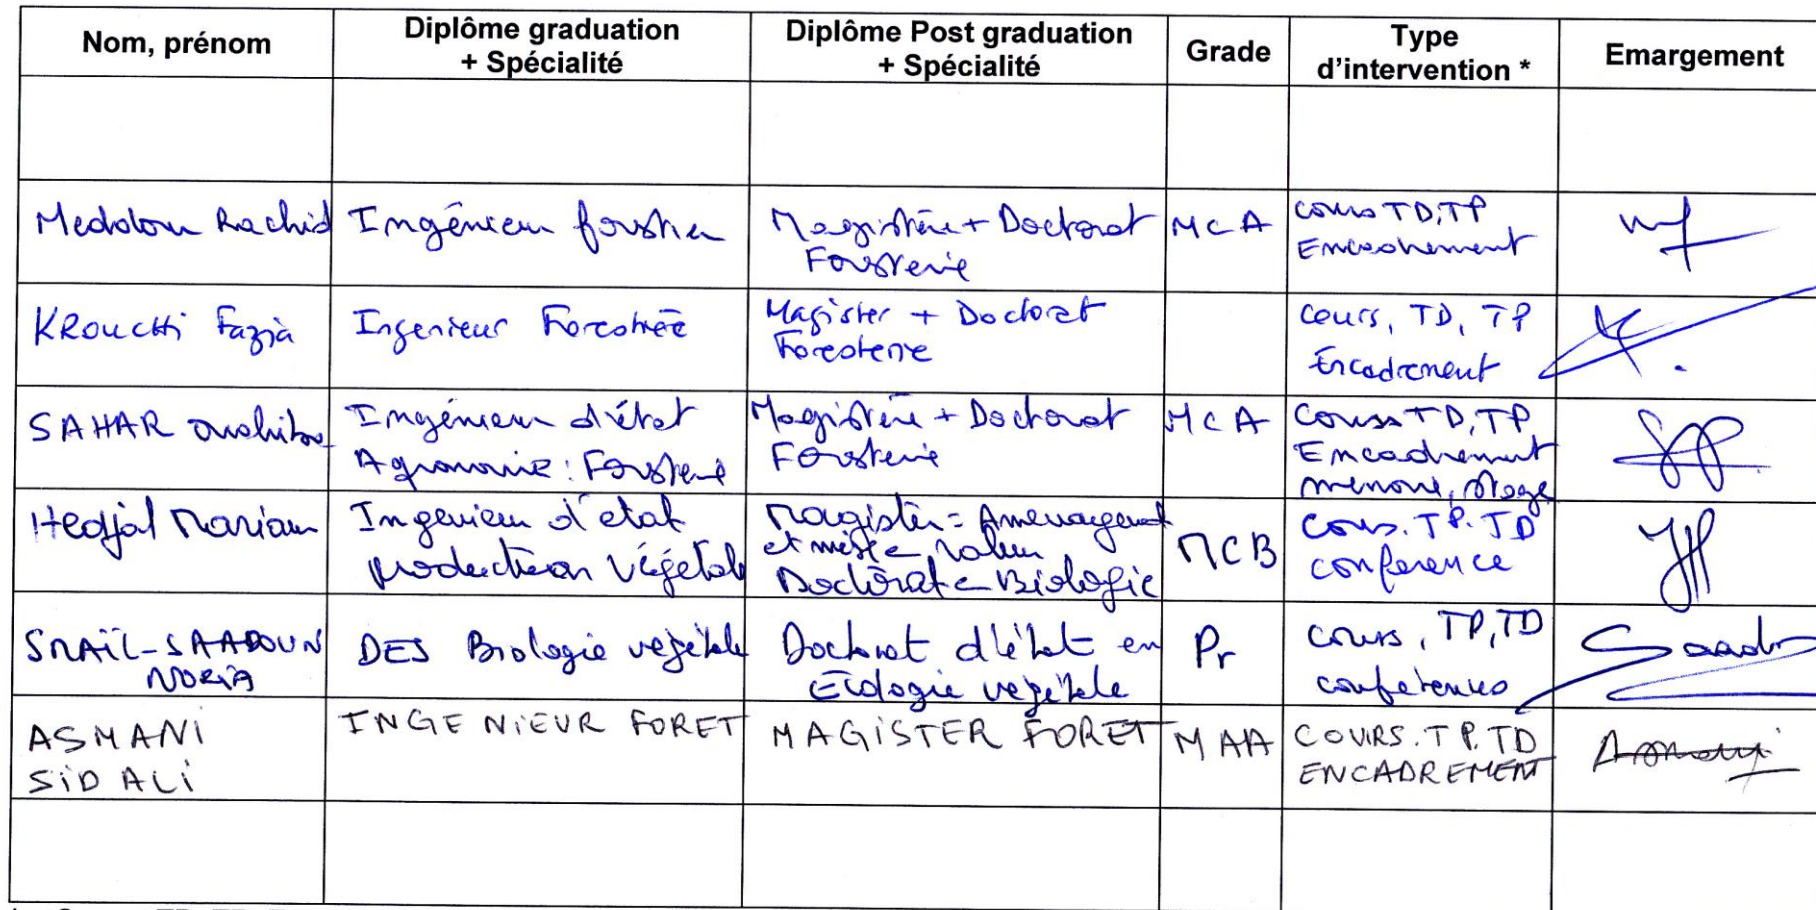 Nom, prénom
Diplôme graduation
+ Spécialité
Diplôme Post graduation
+ Spécialité
Grade
Type
d'intervention *
Emargement
Meddour Rachid
Ingénieur forestier
Magistère + Doctorat
Foresterie
MCA
cours TD, TP
Encadrement
KROUCHI Fazia
Ingenieur
Magister + Doctorat
Foresterie
cours, TD, TP
Encadrement
SAHAR
Ingénieur d'état
Agronomie : Foresterie
Magistère + Doctorat
Foresterie
MCA
Cours TD, TP
Encadrement
mémoire, stage
Hedjal
Ingenieur d'etat
production végétale
Magister = Amenagement
et mise valeur
Doctorat = Biologie
MCB
Cours. TP. TD
conference
SMAÏL-SAADOUN
NORIA
DES Biologie végétale
Doctorat d'état en
Ecologie végétale
Pr
cours, TP, TD
conférences
Saad
ASMANI
SiD ALi
INGENiEUR FORET
MAGiSTER FORET
MAA
COURS. TP. TD
ENCADREMENT